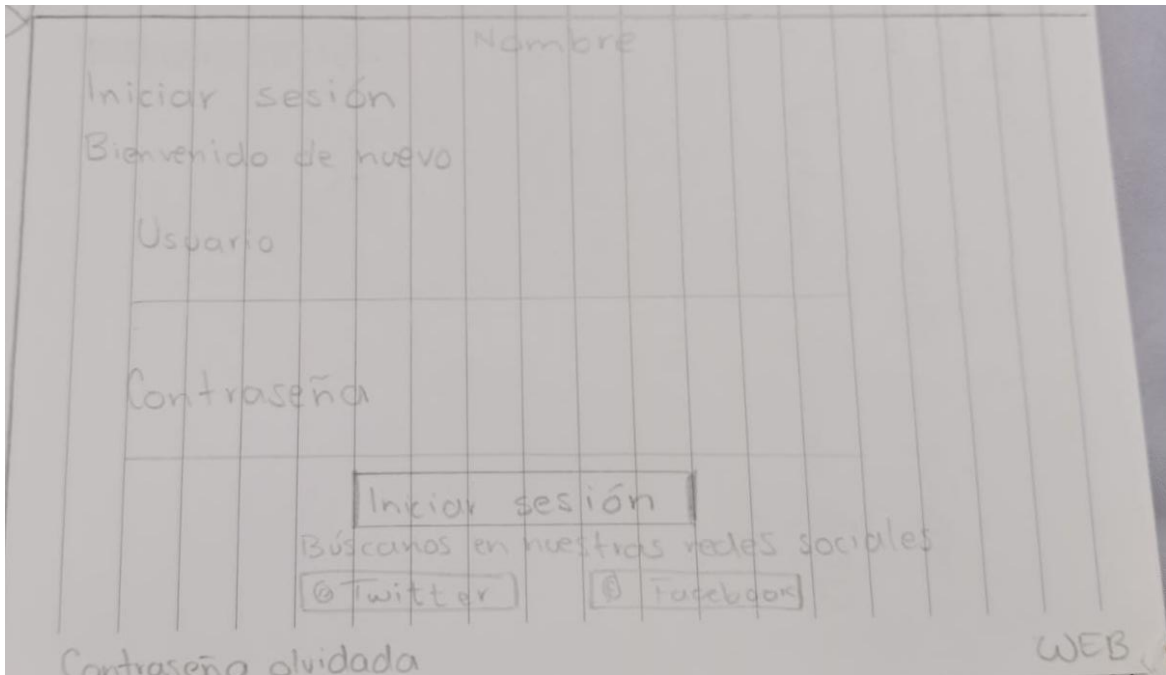 Nombre
Iniciar sesión
Bienvenido de nuevo
Usuario
Contraseña
Iniciar sesión
Búscanos en nuestras redes sociales
Twitter Facebook
Contraseña olvidada
WEB